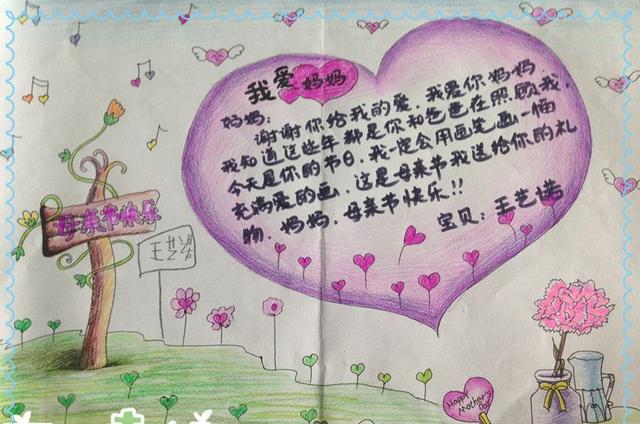 我爱妈妈
妈妈：
谢谢你给我的爱，我爱你妈妈，
我知道这些年都是你和爸爸在照顾我，
今天是你的节日，我一定会用画笔画一幅
充满爱的画，这是母亲节我送给你的礼
物，妈妈，母亲节快乐！！
宝贝：王艺诺
母亲节快乐
王艺诺
Happy
Mother's
Day